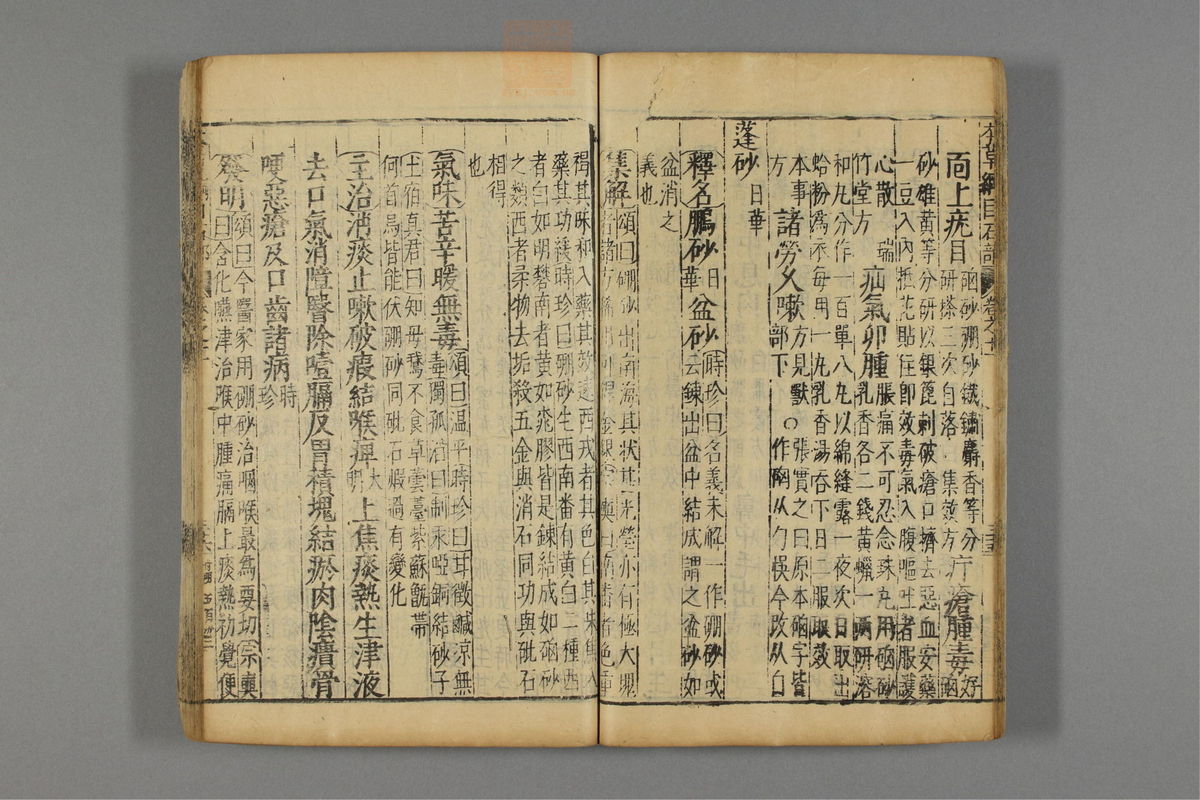 面上疣目 硇砂硼砂鐵鏽麝香等分
研搽三次自落 集效方 疔瘡腫毒 好硇
砂雄黃等分研以銀篦刺破瘡口擠去惡血安藥
一豆入內紙花貼住即效毒氣入腹嘔吐者服護
心散 瑞竹堂方 疝氣卵腫 脹痛不可忍念珠丸用硇砂
乳香各二錢黃蠟一兩研溶
和丸分作一百單八丸以綿縫露一夜次日取出
蛤粉為衣每用一丸乳香湯吞下日二服取效
本事方 諸勞久嗽 方見獸部下 ○張實之曰原本硇字皆
作硇从勺悮今改从白
蓬砂 日華
釋名鵬砂 日華 盆砂 時珍曰名義未解一作硼砂或
云鍊出盆中結成謂之盆砂如
盆消之
義也
集解 頌曰硼砂出南海其狀甚光瑩亦有極大塊
者諸方稀用可銲金銀宗奭曰南番者色重
褐其味和入藥其效速西戎者其色白其味焦入
藥其功緩時珍曰硼砂生西南番有黃白二種西
者白如明礬南者黃如桃膠皆是鍊結成如硇砂
之類西者柔物去垢殺五金與消石同功與砒石
相得
也
氣味苦辛暖無毒 頌曰温平時珍曰耳微鹹凉無
毒獨孤滔曰制汞啞銅結砂子
土宿真君曰知母鵝不食草蕓薹紫蘇甑帶
何首烏皆能伏硼砂同砒石煅過有變化
主治消痰止嗽破癥結喉痺 大明 上焦痰熱生津液
去口氣消障瞖除噎膈反胃積塊結瘀肉陰㿉骨
哽惡瘡及口齒諸病 時珍
發明 頌曰今醫家用硼砂治咽喉最爲要切宗奭
曰含化嚥津治喉中腫痛膈上痰熱初覺便